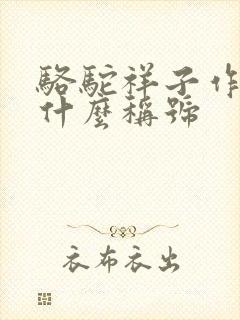 駱駝祥子作
什麼稱號
衣布衣出